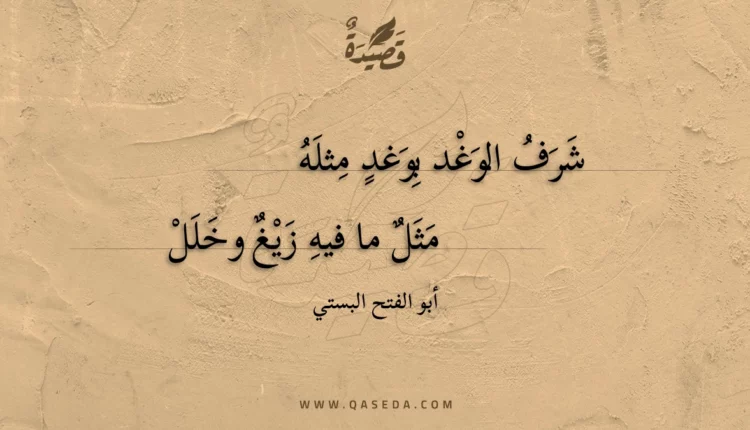 قَصِيدَةٌ
شَرَفُ الوَغْد بِوَغدٍ مِثلَهُ
مَثَلٌ ما فيهِ زَيْغٌ وخَلَلْ
أبو الفتح البستي
WWW.QASEDA.COM